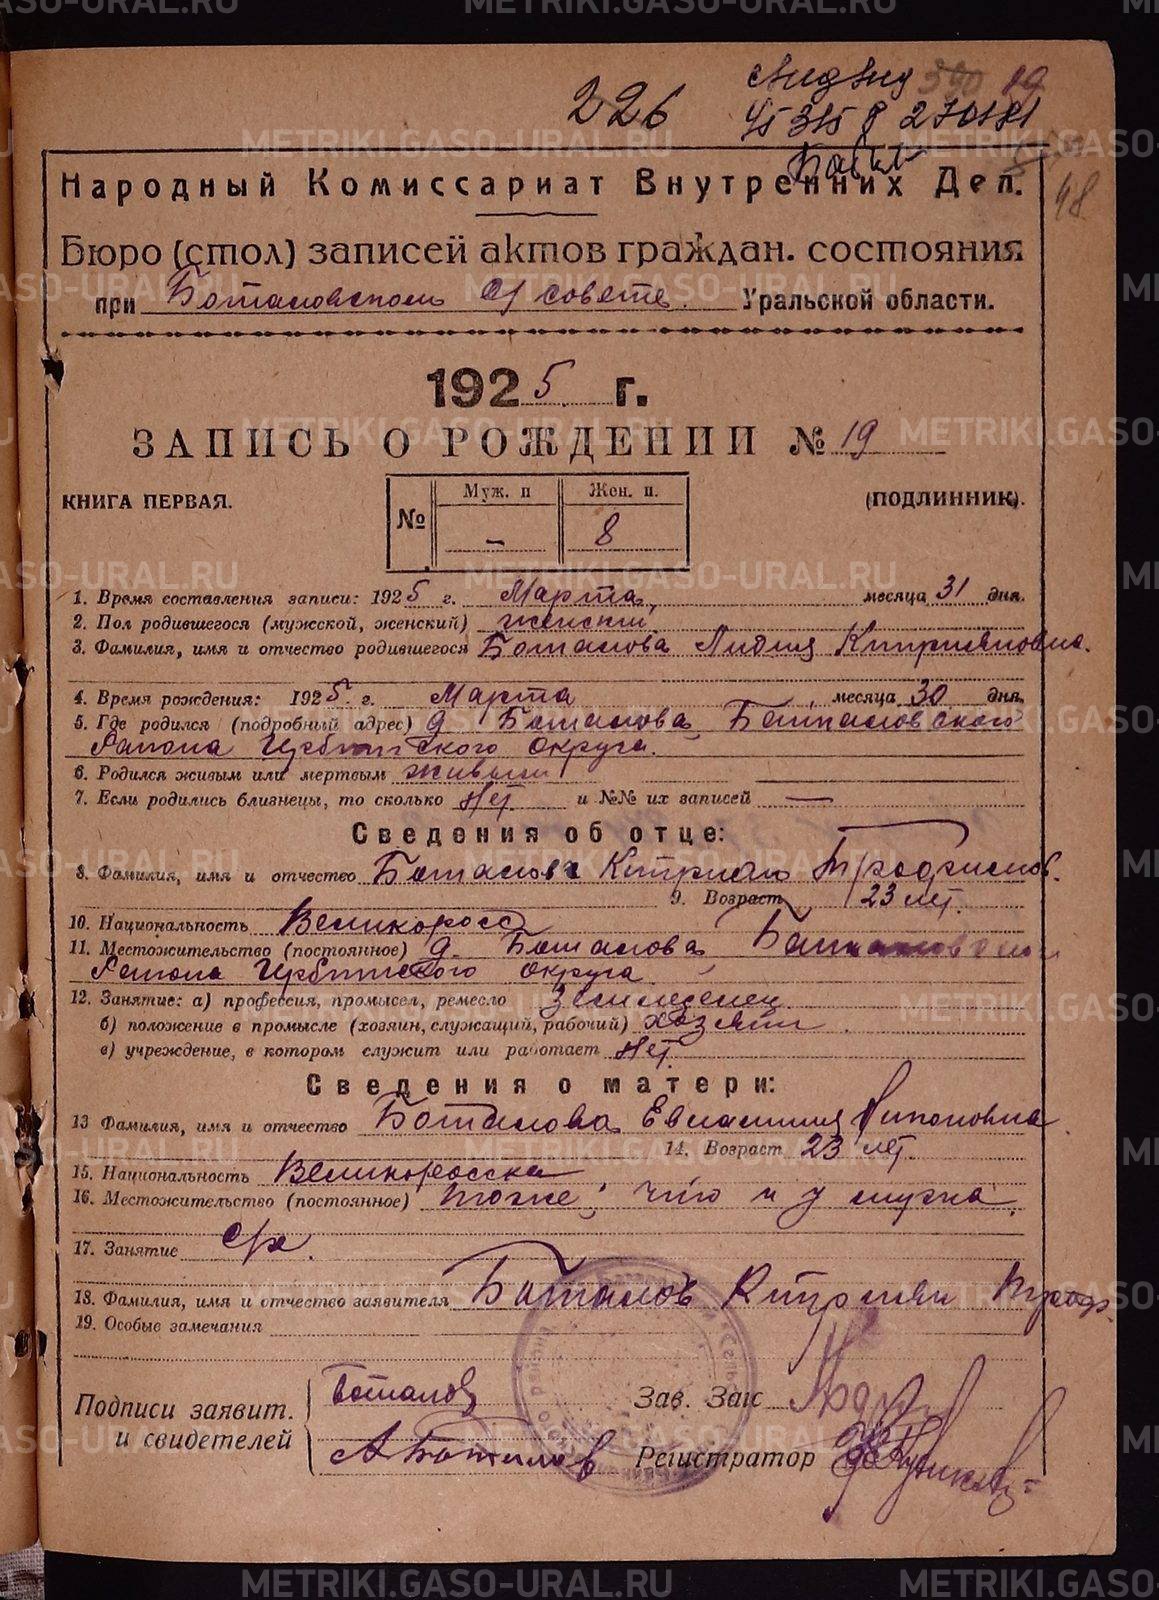 226
19
48
Народный Комиссариат Внутренних Дел.
Бюро (стол) записей актов граждан. состояния
при Боталовском с/совете. Уральской области.
1925 г.
ЗАПИСЬ О РОЖДЕНИИ № 19
КНИГА ПЕРВАЯ.
(ПОДЛИННИК).
№ Муж. п Жен. п.
— 8
1. Время составления записи: 1925 г. Марта месяца 31 дня.
2. Пол родившегося (мужской, женский) женский
3. Фамилия, имя и отчество родившегося Боталова Лидия Киприяновна.
4. Время рождения: 1925 г. Марта месяца 30 дня.
5. Где родился (подробный адрес) д. Боталова
Района Ирбитского округа.
6. Родился живым или мертвым живым
7. Если родились близнецы, то сколько Нет и №№ их записей —
Сведения об отце:
8. Фамилия, имя и отчество Киприан
9. Возраст 23 лет.
10. Национальность Великоросс
11. Местожительство (постоянное) д. Боталова
Района Ирбитского округа
12. Занятие: а) профессия, промысел, ремесло Земледелец
б) положение в промысле (хозяин, служащий, рабочий) хозяин.
в) учреждение, в котором служит или работает Нет.
Сведения о матери:
13 Фамилия, имя и отчество Боталова
14. Возраст 23 лет.
15. Национальность Великоросска
16. Местожительство (постоянное) тоже, что и у мужа.
17. Занятие
18. Фамилия, имя и отчество заявителя Боталов Киприян
19. Особые замечания
Подписи заявит.
и свидетелей
Боталов
А Боталов
Зав. Загс
Регистратор
METRIKI.GASO-URAL.RU